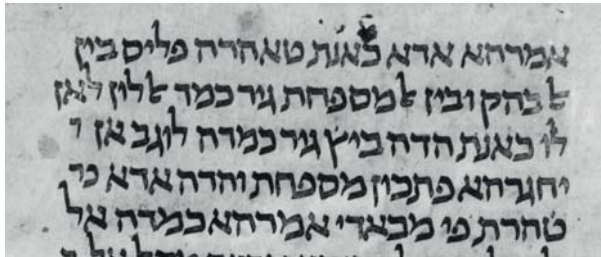 אמרהא אדא כאנת טאהרה פליס בין
ﭏבהק ובין ﭏמספחת גיר כמד ﭏלון לאן
לו כאנת הדה ביץ גיר כמדה לוגב אן י
יחגרהא פתכון מספחת והדה אדא כר
טהרת פי מבאדי אמרהא כמדה אל